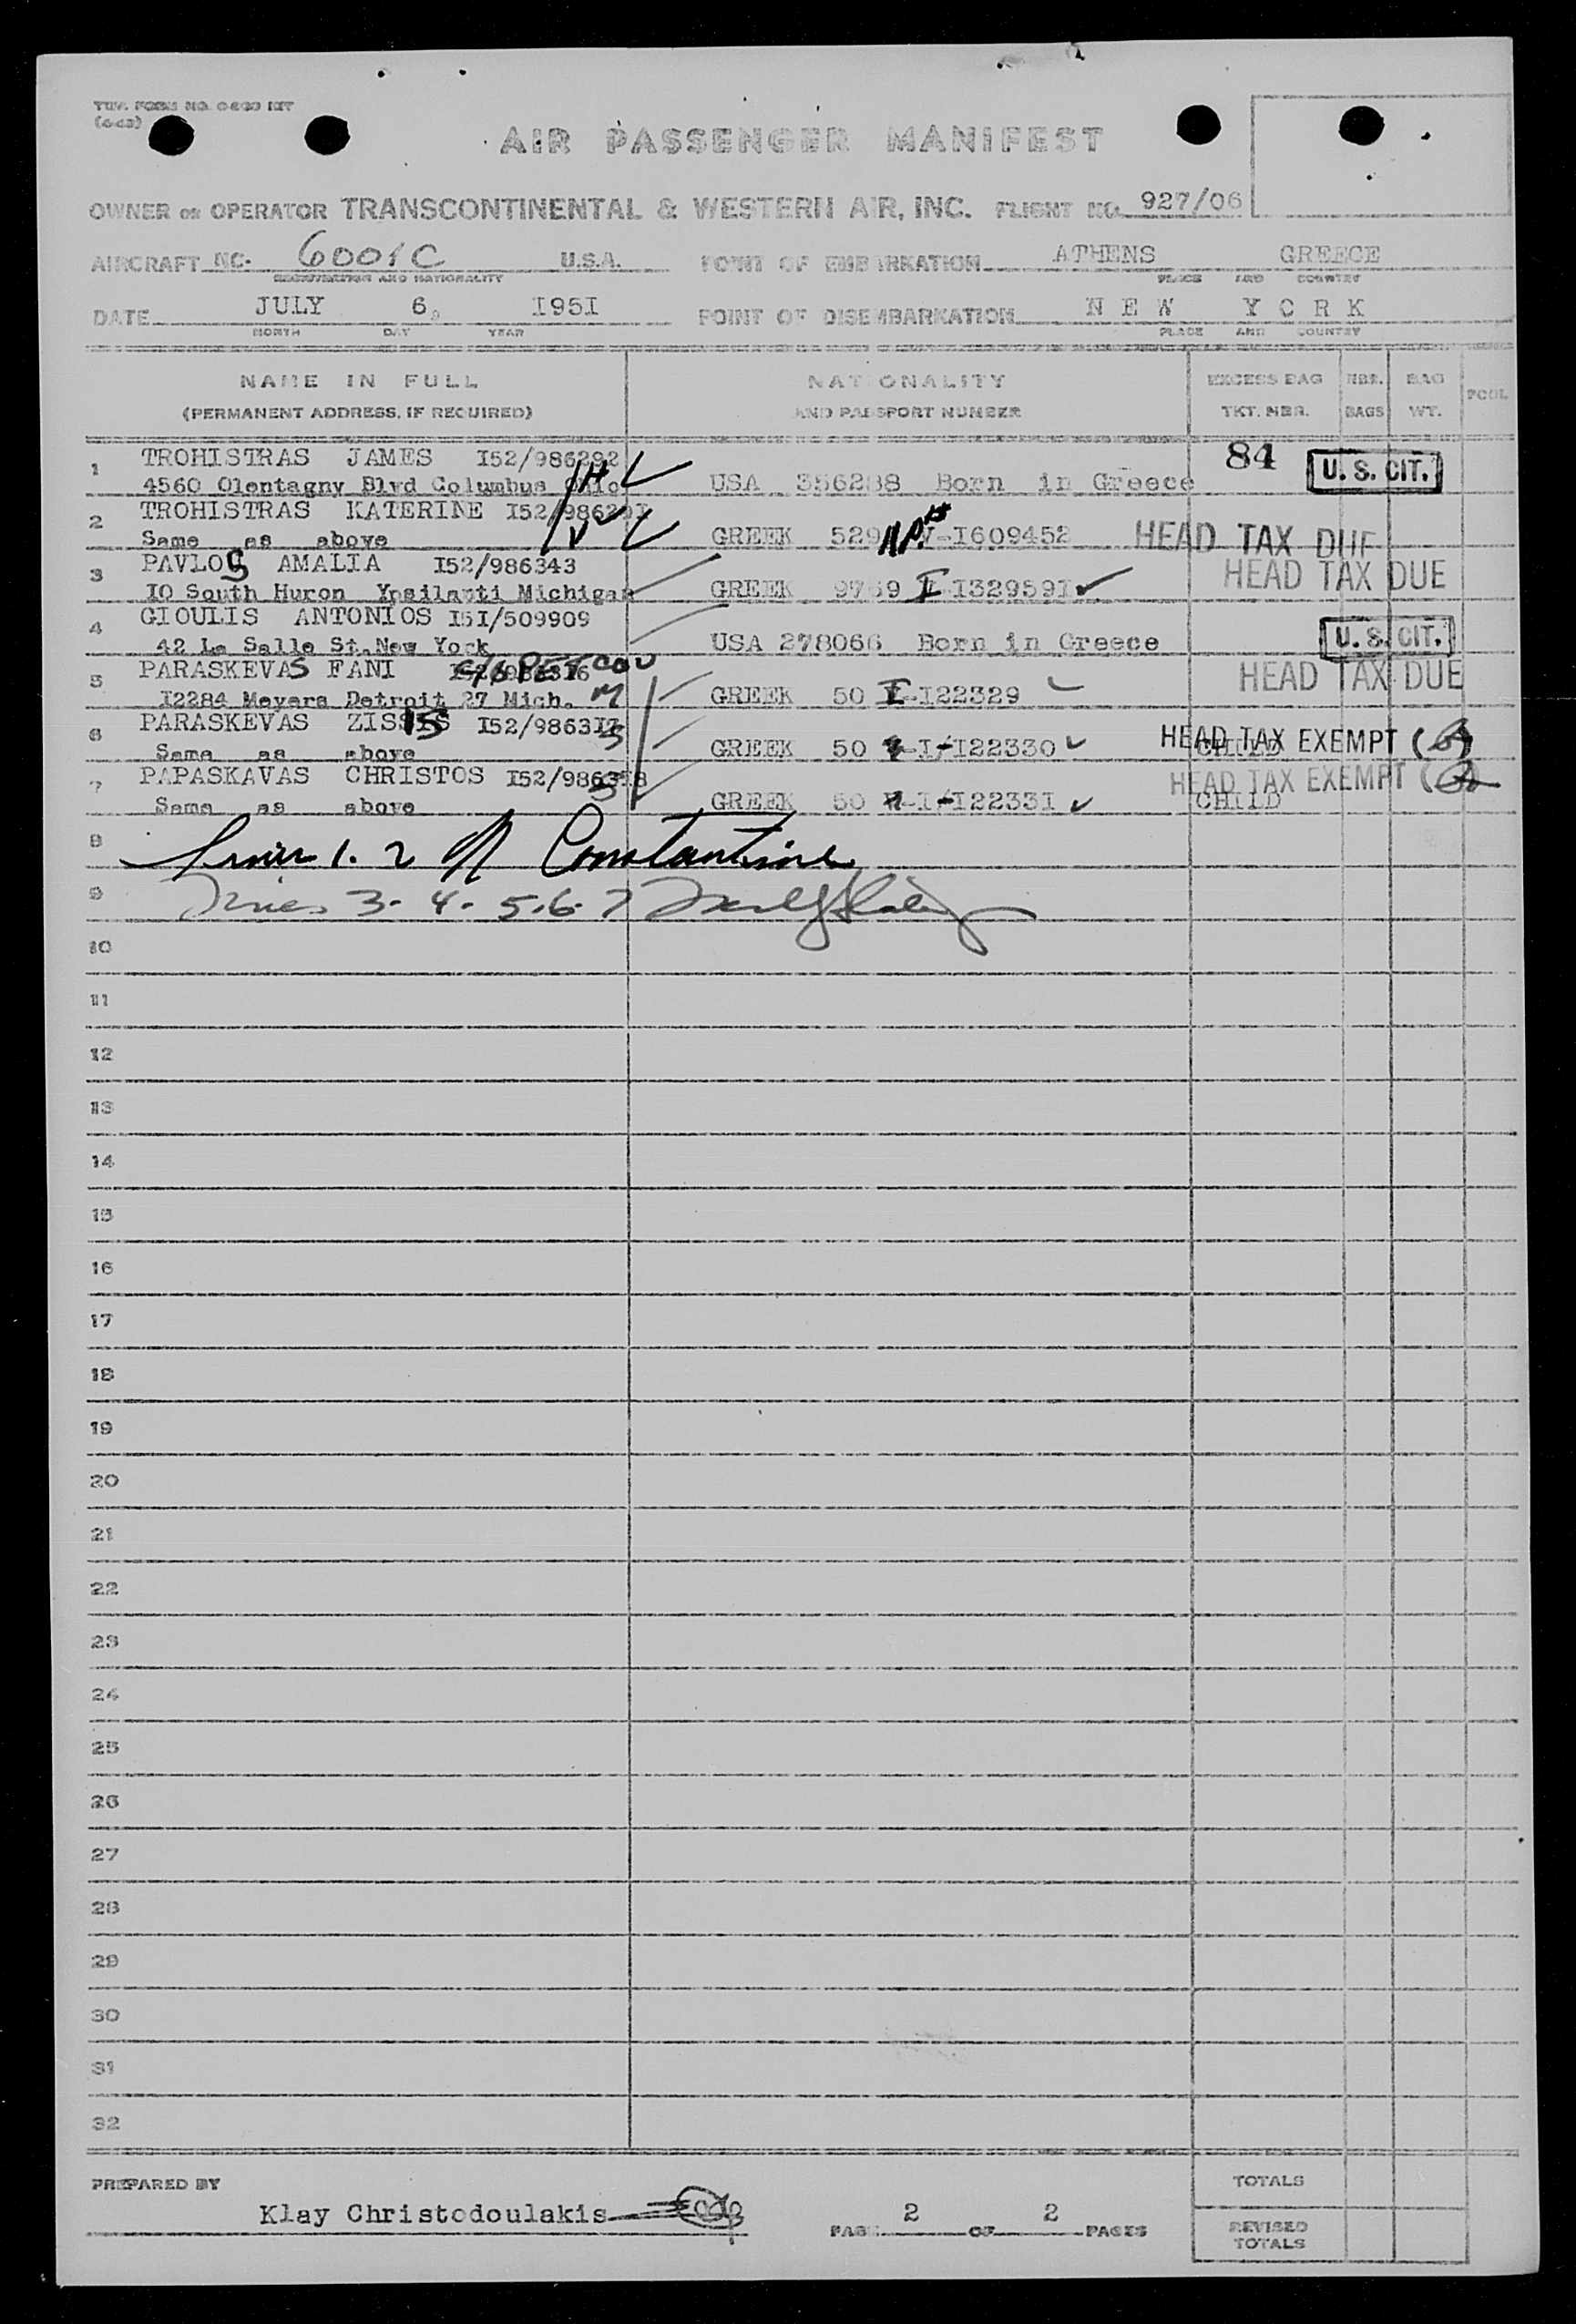 TWA FORM NO. 0-200 INT
AIR PASSENGER MANIFEST
OWNER OR OPERATOR TRANSCONTINENTAL & WESTERN AIR, INC. FLIGHT NO. 927/06
AIRCRAFT NC- 6001C U.S.A. POINT OF EMBARKATION ATHENS GREECE
REGISTRATION AND NATIONALITY PLACE AND COUNTRY
DATE JULY 6, I95I POINT OF DISEMBARKATION N E W Y O R K
MONTH DAY YEAR PLACE AND COUNTRY
NAME IN FULL NATIONALITY EXCESS BAG NBR. BAG POOL
(PERMANENT ADDRESS, IF REQUIRED) AND PASSPORT NUMBER TKT. NBR. BAGS WT.
1 TROHISTRAS JAMES I52/986292 84 U.S. CIT.
4560 Olentagny Blvd Columbus Ohio USA 356288 Born in Greece
2 TROHISTRAS KATERINE I52/98629I
Same as above GREEK 529 I609452 HEAD TAX DUE
3 PAVLOS AMALIA I52/986343
IO South Huron Ypsilanti Michigan GREEK 9759 I-I32959I HEAD TAX DUE
4 GIOULIS ANTONIOS I5I/509909
42 La Salle St. New York USA 278066 Born in Greece U.S. CIT.
5 PARASKEVAS FANI
I2284 Meyers Detroit 27 Mich. GREEK 50 I-I22329 HEAD TAX DUE
6 PARASKEVAS ZISSIS I52/9863I7
Same as above GREEK 50 I-I22330 CHILD HEAD TAX EXEMPT
7 PAPASKAVAS CHRISTOS I52/986318
Same as above GREEK 50 I-I2233I CHILD HEAD TAX EXEMPT
8 Lines 1. 2 N Constantine
9 Lines 3. 4. 5. 6. 7
10
11
12
13
14
15
16
17
18
19
20
21
22
23
24
25
26
27
28
29
30
31
32
PREPARED BY TOTALS
Klay Christodoulakis
PAGE 2 OF 2 PAGES REVISED TOTALS